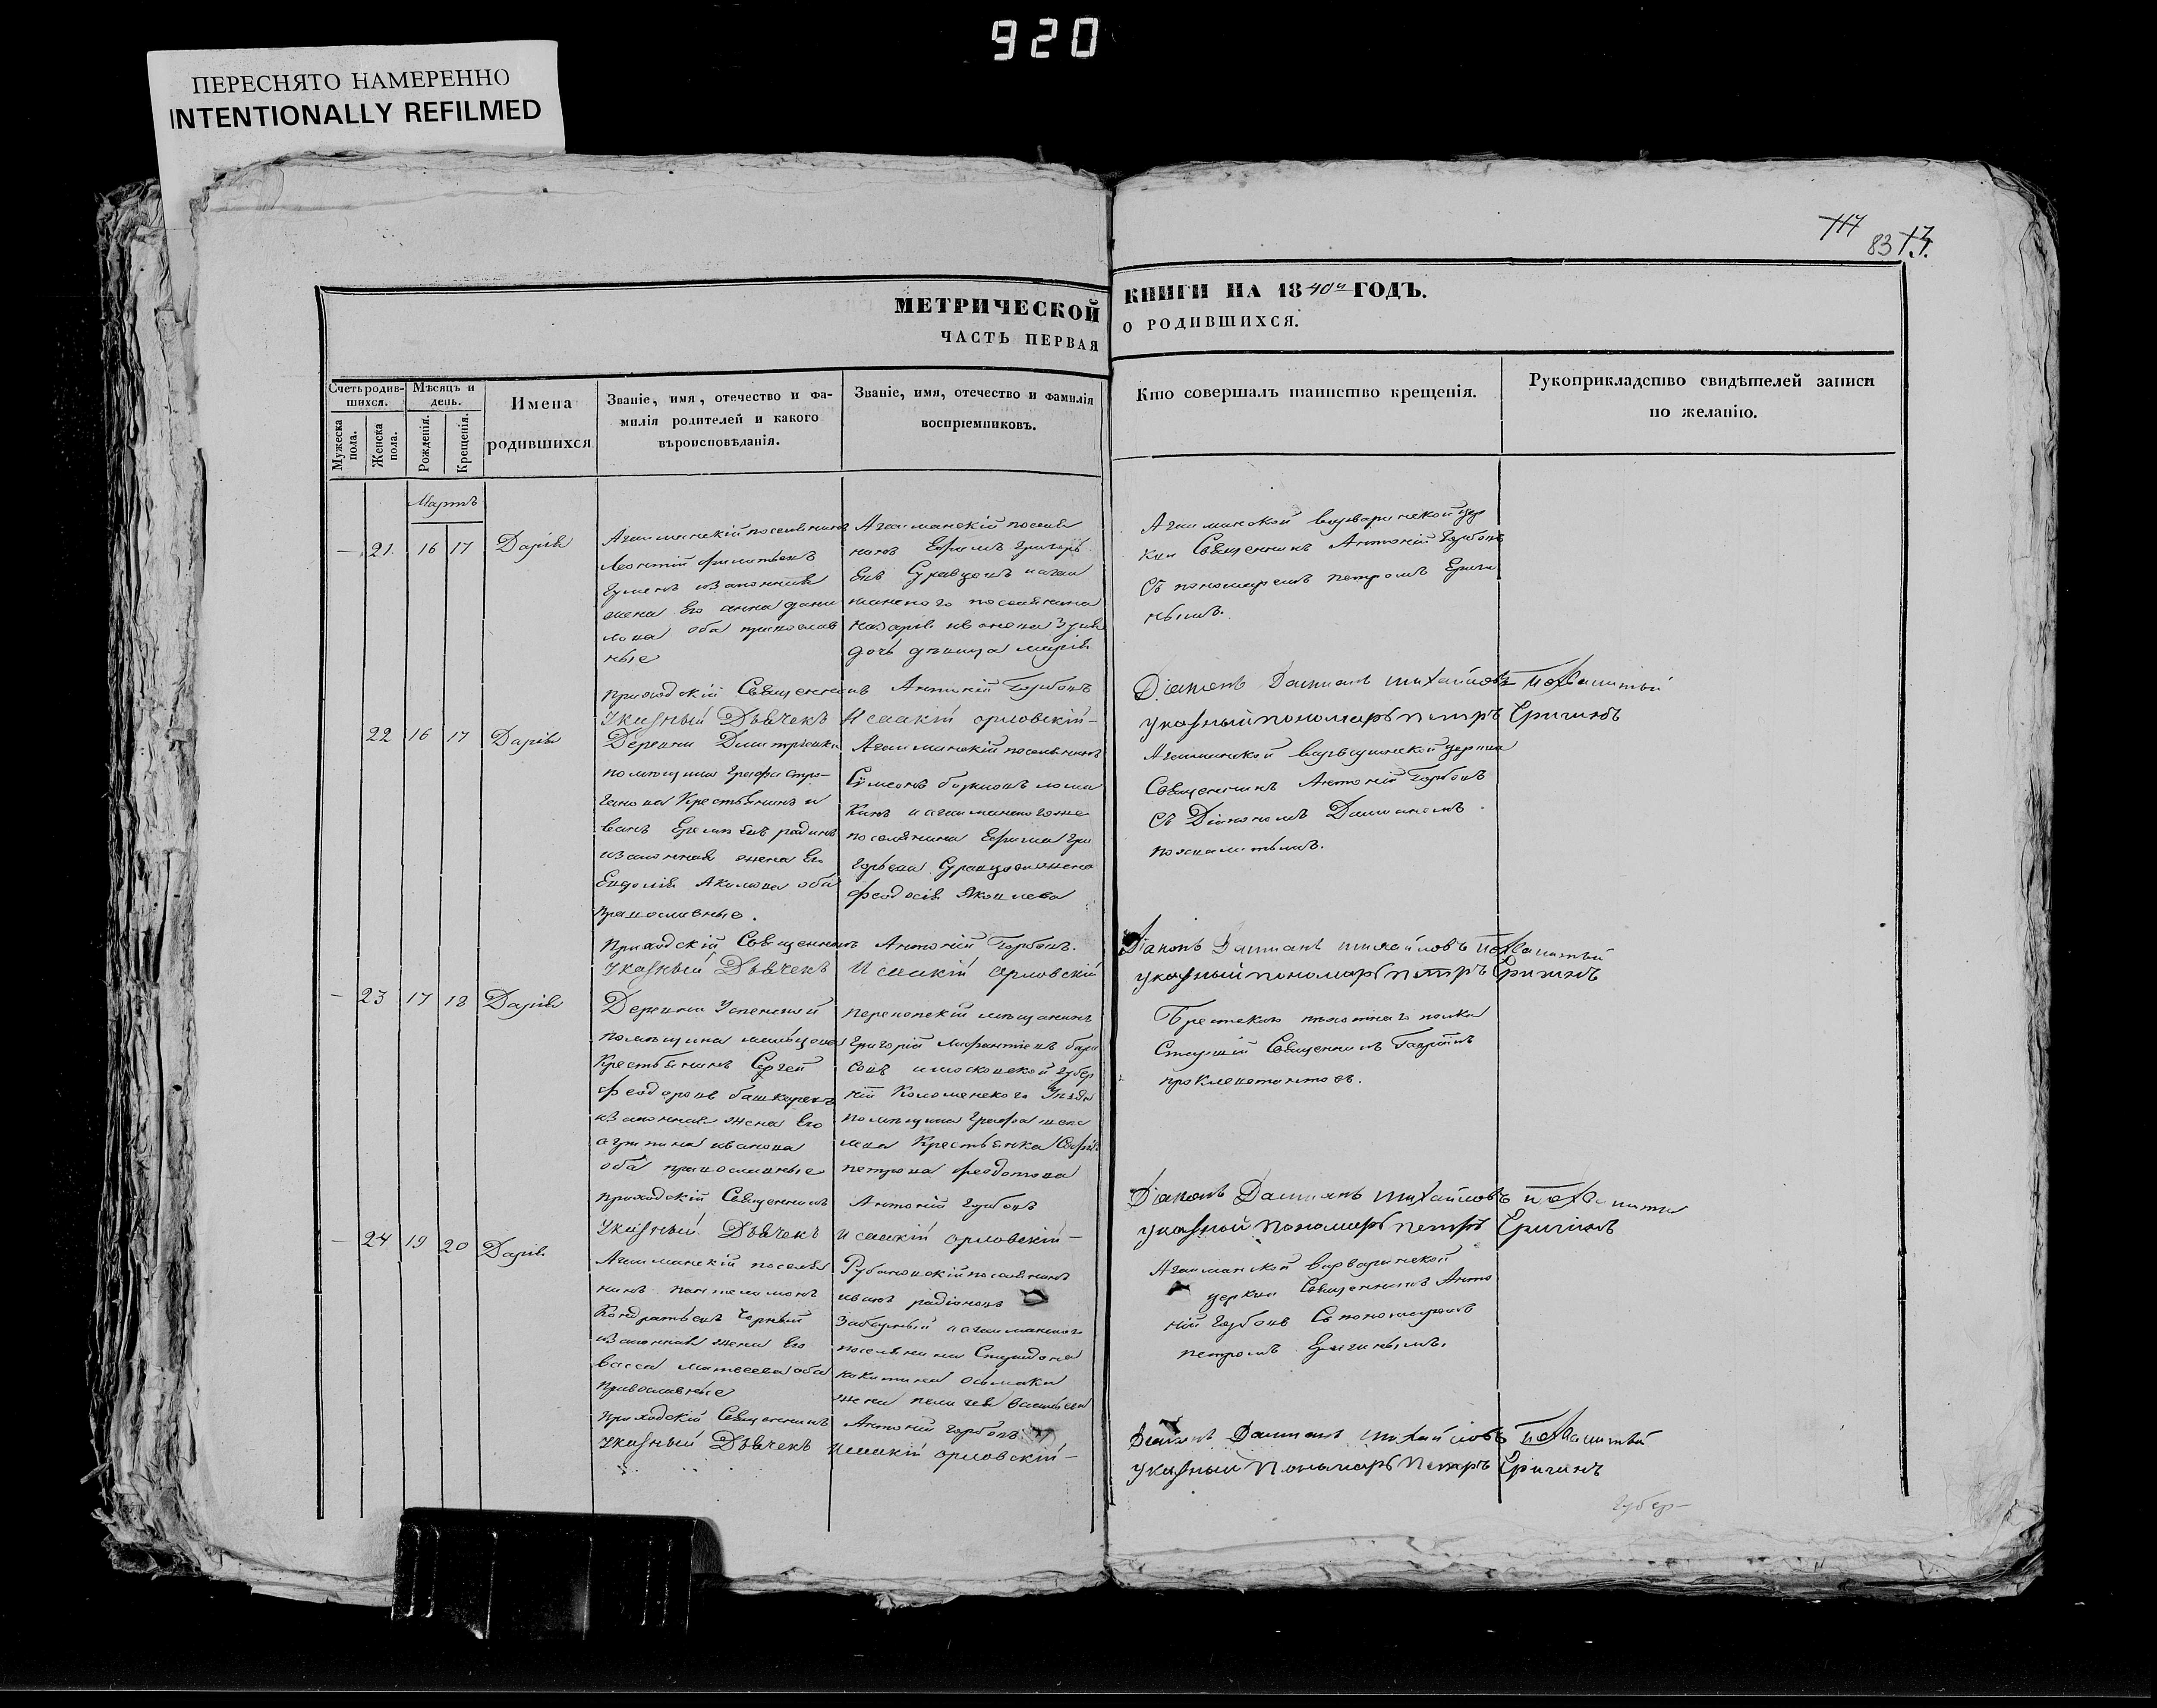 920
ПЕРЕСНЯТО НАМЕРЕННО
INTENTIONALLY REFILMED
117
83
МЕТРИЧЕСКОЙ КНИГИ НА 1840й ГОДЪ.
ЧАСТЬ ПЕРВАЯ О РОДИВШИХСЯ.
Счетъ родившихся.
Мужеска пола.
Женска пола.
Мѣсяцъ и день.
Рожденія.
Крещенія.
Имена родившихся
Званіе, имя, отечество и фа-
милія родителей и какого
вѣроисповѣданія.
Званіе, имя, отечество и фамилія
воспріемниковъ.
Кто совершалъ таинство крещенія.
Рукоприкладство свидѣтелей записи
по желанію.
Мартъ
— 21. 16 17 Дарія
Агайманскій поселянинъ
Леонтій Филиповъ
законная
жена Его анна дани
лова оба православ
ные
Агайманскій поселя
нинъ Ефимъ Григорь
евъ Суравцовъ и агай
манскаго поселянина
назарія иванова
дочь дѣвица марія
Агайманской варваринской цер
кви Священникъ Антоній Горбовъ
Съ пономаремъ петромъ Ериги
нымъ.
приходскій Священникъ Антоній Горбовъ
Указный Дьячекъ Исаакій орловскій —
Діаконъ Даміанъ михайловъ
указный пономарь петръ Еригинъ
22 16 17 Дарія
Деревни Дмитріевки
помѣщика Графа Стро-
ганова Крестьянинъ и
ванъ родинъ
законная жена Его
Евдокія Акимова оба
православные.
Агайманскій поселянинъ
Сѵмеонъ
кинъ и агайманскаго же
поселянина Ефима Гри
горьева Суравцова жена
феодосія Яковлева
Агайманской варваринской церкви
Священникъ Антоній Горбовъ
съ Діакономъ Даміаномъ
приходскій Священникъ Антоній Горбовъ.
Указный Дьячекъ Исаакій орловскій
Діаконъ Даміанъ михайловъ
указный пономарь петръ Еригинъ
— 23 17 18 Дарія
Деревни Успенской
помѣщика мальцова
Крестьянинъ Сергей
Феодоровъ
законная жена Его
агрипина иванова
оба православные
перекопскій мѣщанинъ
григорій
совъ и московской губер
ніи Коломенскаго Уѣзда
помѣщика Графа
Крестьянка Софія
петрова феодотова
Брестскаго пѣхотнаго полка
Старшій Священникъ
приходскій Священникъ Антоній Горбовъ
Указный Дьячекъ Исаакій орловскій —
Діаконъ Даміанъ михайловъ
указный пономарь петръ Еригинъ
— 24 19 20 Дарія
Агайманскій поселя
нинъ пантелеимонъ
Кондратьевъ Черный
законная жена Его
васса матвеева оба
православные
Рубановскій поселянинъ
иванъ радіоновъ
и агайманскаго
поселянина Спиридона
никитина
жена пелагея
Агайманской варваринской
церкви Священникъ Анто
ній Горбовъ Съ пономаремъ
петромъ Еригинымъ.
приходскій Священникъ Антоній горбовъ
Указный Дьячекъ Исаакій орловскій —
Діаконъ Даміанъ михайловъ
указный пономарь петръ Еригинъ
губер—